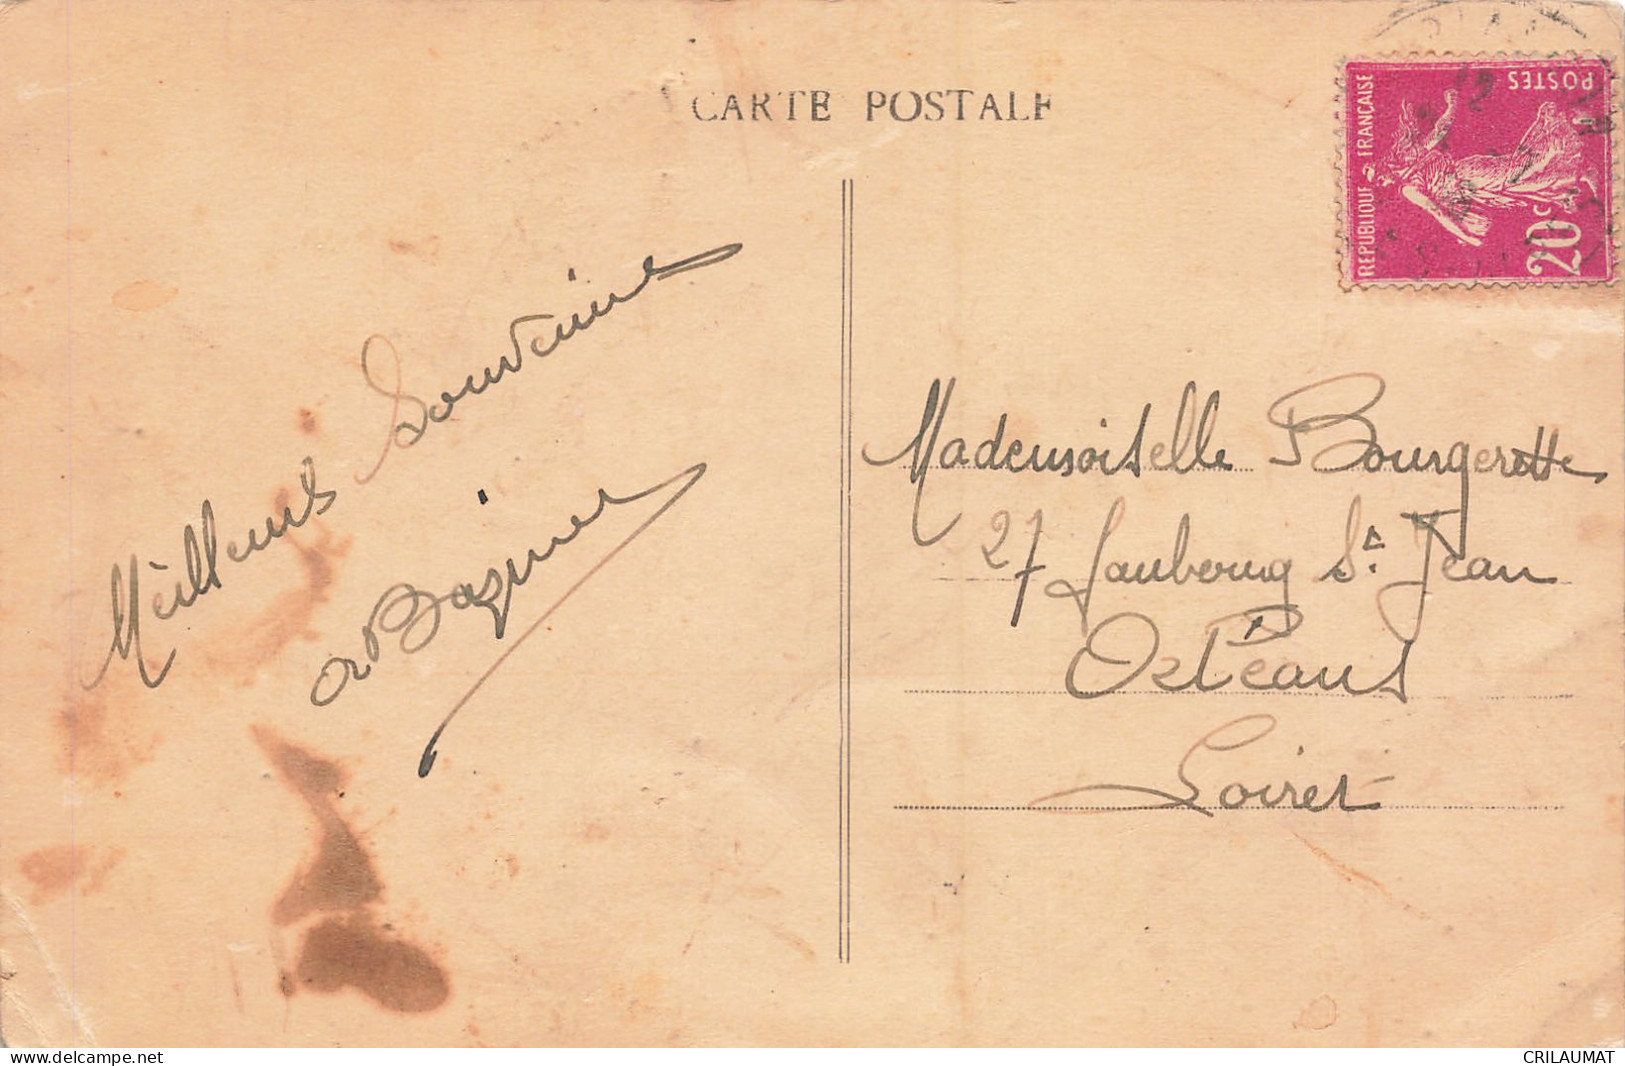 CARTE POSTALE
POSTES
REPUBLIQUE FRANÇAISE
20c
Meilleurs Souvenirs
Mademoiselle Bourgerette
27 Faubourg St. Jean
Orléans
Loiret
www.delcampe.net
CRILAUMAT